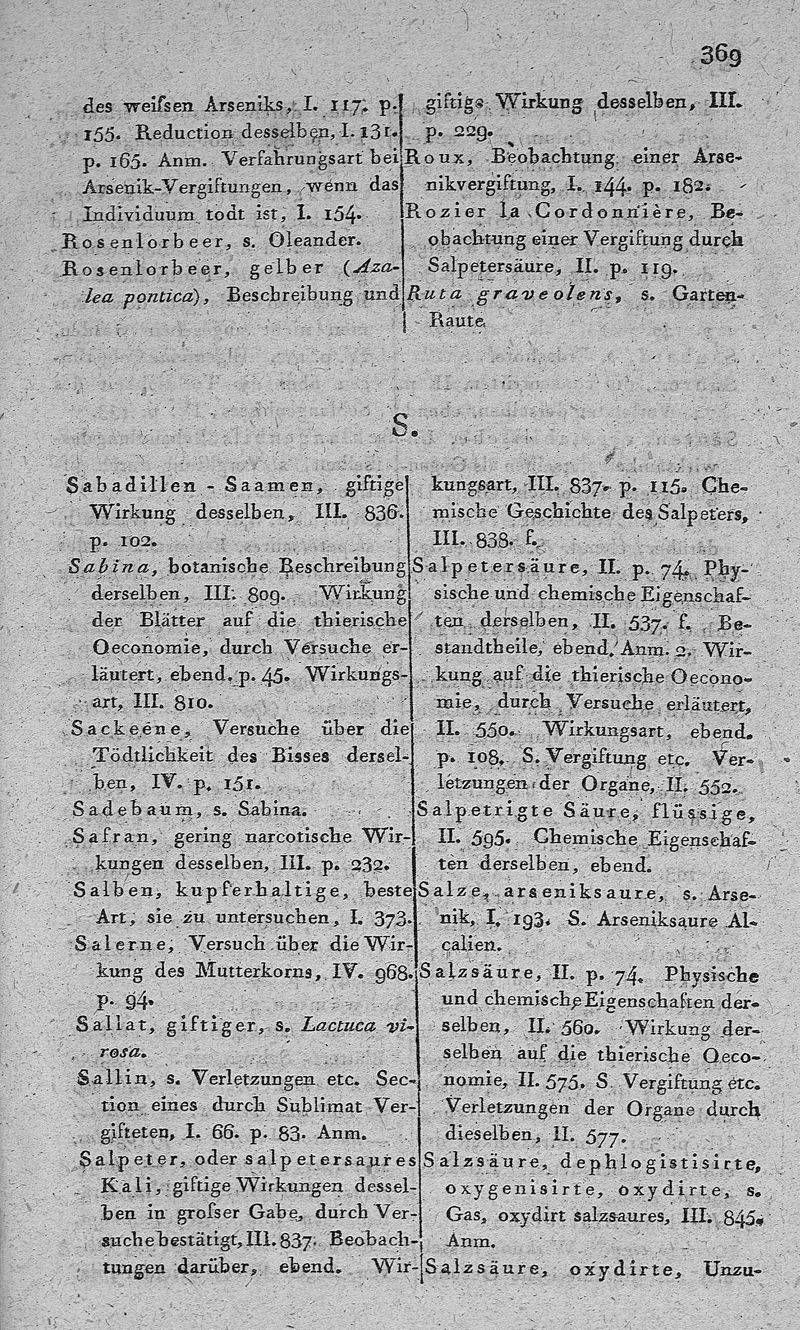 369
des weiſsen Arseniks, I. 117. p.
155. Reduction desselben, I. 131.
p. 165. Anm. Verfahrungsart bei
Arsenik-Vergiftungen, wenn das
Individuum todt ist, I. 154.
Rosenlorbeer, s. Oleander.
Rosenlorbeer, gelber (Aza-
lea pontica), Beschreibung und
giftige Wirkung desselben, III.
p. 229.
Roux, Beobachtung einer Arse-
nikvergiftung, I. 144. p. 182.
Rozier la Cordonnière, Be-
obachtung einer Vergiftung durch
Salpetersäure, II. p. 119.
Ruta graveolens, s. Garten-
Raute.
S.
Sabadillen-Saamen, giftige
Wirkung desselben, III. 836.
p. 102.
Sabina, botanische Beschreibung
derselben, III. 809. Wirkung
der Blätter auf die thierische
Oeconomie, durch Versuche er-
läutert, ebend. p. 45. Wirkungs-
art, III. 810.
Sackeene, Versuche über die
Tödtlichkeit des Bisses dersel-
ben, IV. p. 151.
Sadebaum, s. Sabina.
Safran, gering narcotische Wir-
kungen desselben, III. p. 232.
Salben, kupferhaltige, beste
Art, sie zu untersuchen, I. 373.
Salerne, Versuch über die Wir-
kung des Mutterkorns, IV. 968.
p. 94.
Sallat, giftiger, s. Lactuca vi-
rosa.
Sallin, s. Verletzungen etc. Sec-
tion eines durch Sublimat Ver-
gifteten, I. 66. p. 83. Anm.
Salpeter, oder salpetersaures
Kali, giftige Wirkungen dessel-
ben in groſser Gabe, durch Ver-
suche bestätigt, III. 837. Beobach-
tungen darüber, ebend. Wir-
kungsart, III. 837. p. 115. Che-
mische Geschichte des Salpeters,
III. 838. f.
Salpetersäure, II. p. 74. Phy-
sische und chemische Eigenschaf-
ten derselben, II. 537. f. Be-
standtheile, ebend. Anm. 2. Wir-
kung auf die thierische Oecono-
mie, durch Versuche erläutert,
II. 550. Wirkungsart, ebend.
p. 108. S. Vergiftung etc. Ver-
letzungen der Organe, II. 552.
Salpetrigte Säure, flüssige,
II. 595. Chemische Eigenschaf-
ten derselben, ebend.
Salze, arseniksaure, s. Arse-
nik, I. 193. S. Arseniksaure Al-
calien.
Salzsäure, II. p. 74. Physische
und chemische Eigenschaften der-
selben, II. 560. Wirkung der-
selben auf die thierische Oeco-
nomie, II. 575. S. Vergiftung etc.
Verletzungen der Organe durch
dieselben, II. 577.
Salzsäure, dephlogistisirte,
oxygenisirte, oxydirte, s.
Gas, oxydirt salzsaures, III. 845.
Anm.
Salzsäure, oxydirte, Unzu-